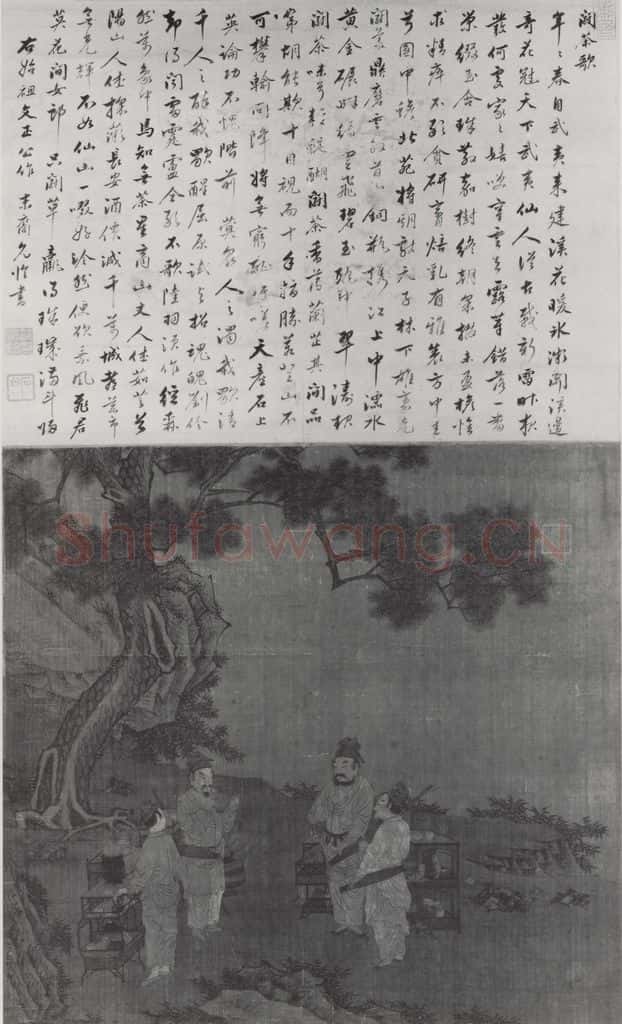 鬪茶歌
年〻春自武夷来建溪花暖冰微開溪邊
奇花冠天下武夷仙人從古栽新雷昨夜
發何處家〻嬉笑穿雲去露芽錯落一番
榮綴玉含珠散嘉樹終朝采掇未盈襜惟
求精粹不敢貪研膏焙乳有雅製方中圭
兮圓中蟾北苑將期献天子林下雄豪先
鬪美鼎磨雲外首山銅瓶携江上中濡水
黄金碾畔緑塵飛碧玉甌中翠濤起
鬪茶味兮輕醍醐鬪茶香兮薄蘭芷其間品
第胡能欺十目視而十手指勝若登仙不
可攀輸同降將無窮恥吁嗟天產石上
英論功不愧階前蓂衆人之濁我歌清
千人之醉我歌醒屈原試與招魂魄劉伶
却得聞雷霆盧仝敢不歌陸羽須作經森
然萬象中焉知無茶星商山丈人休茹芝首
陽山人休採薇長安酒價減千萬城都藥市
無光輝不如仙山一啜好泠然便欲乘風飛君
莫花間女郎只鬪草贏得珠璣滿斗歸
右始祖文正公作 末裔允临書
Shufawang.CN